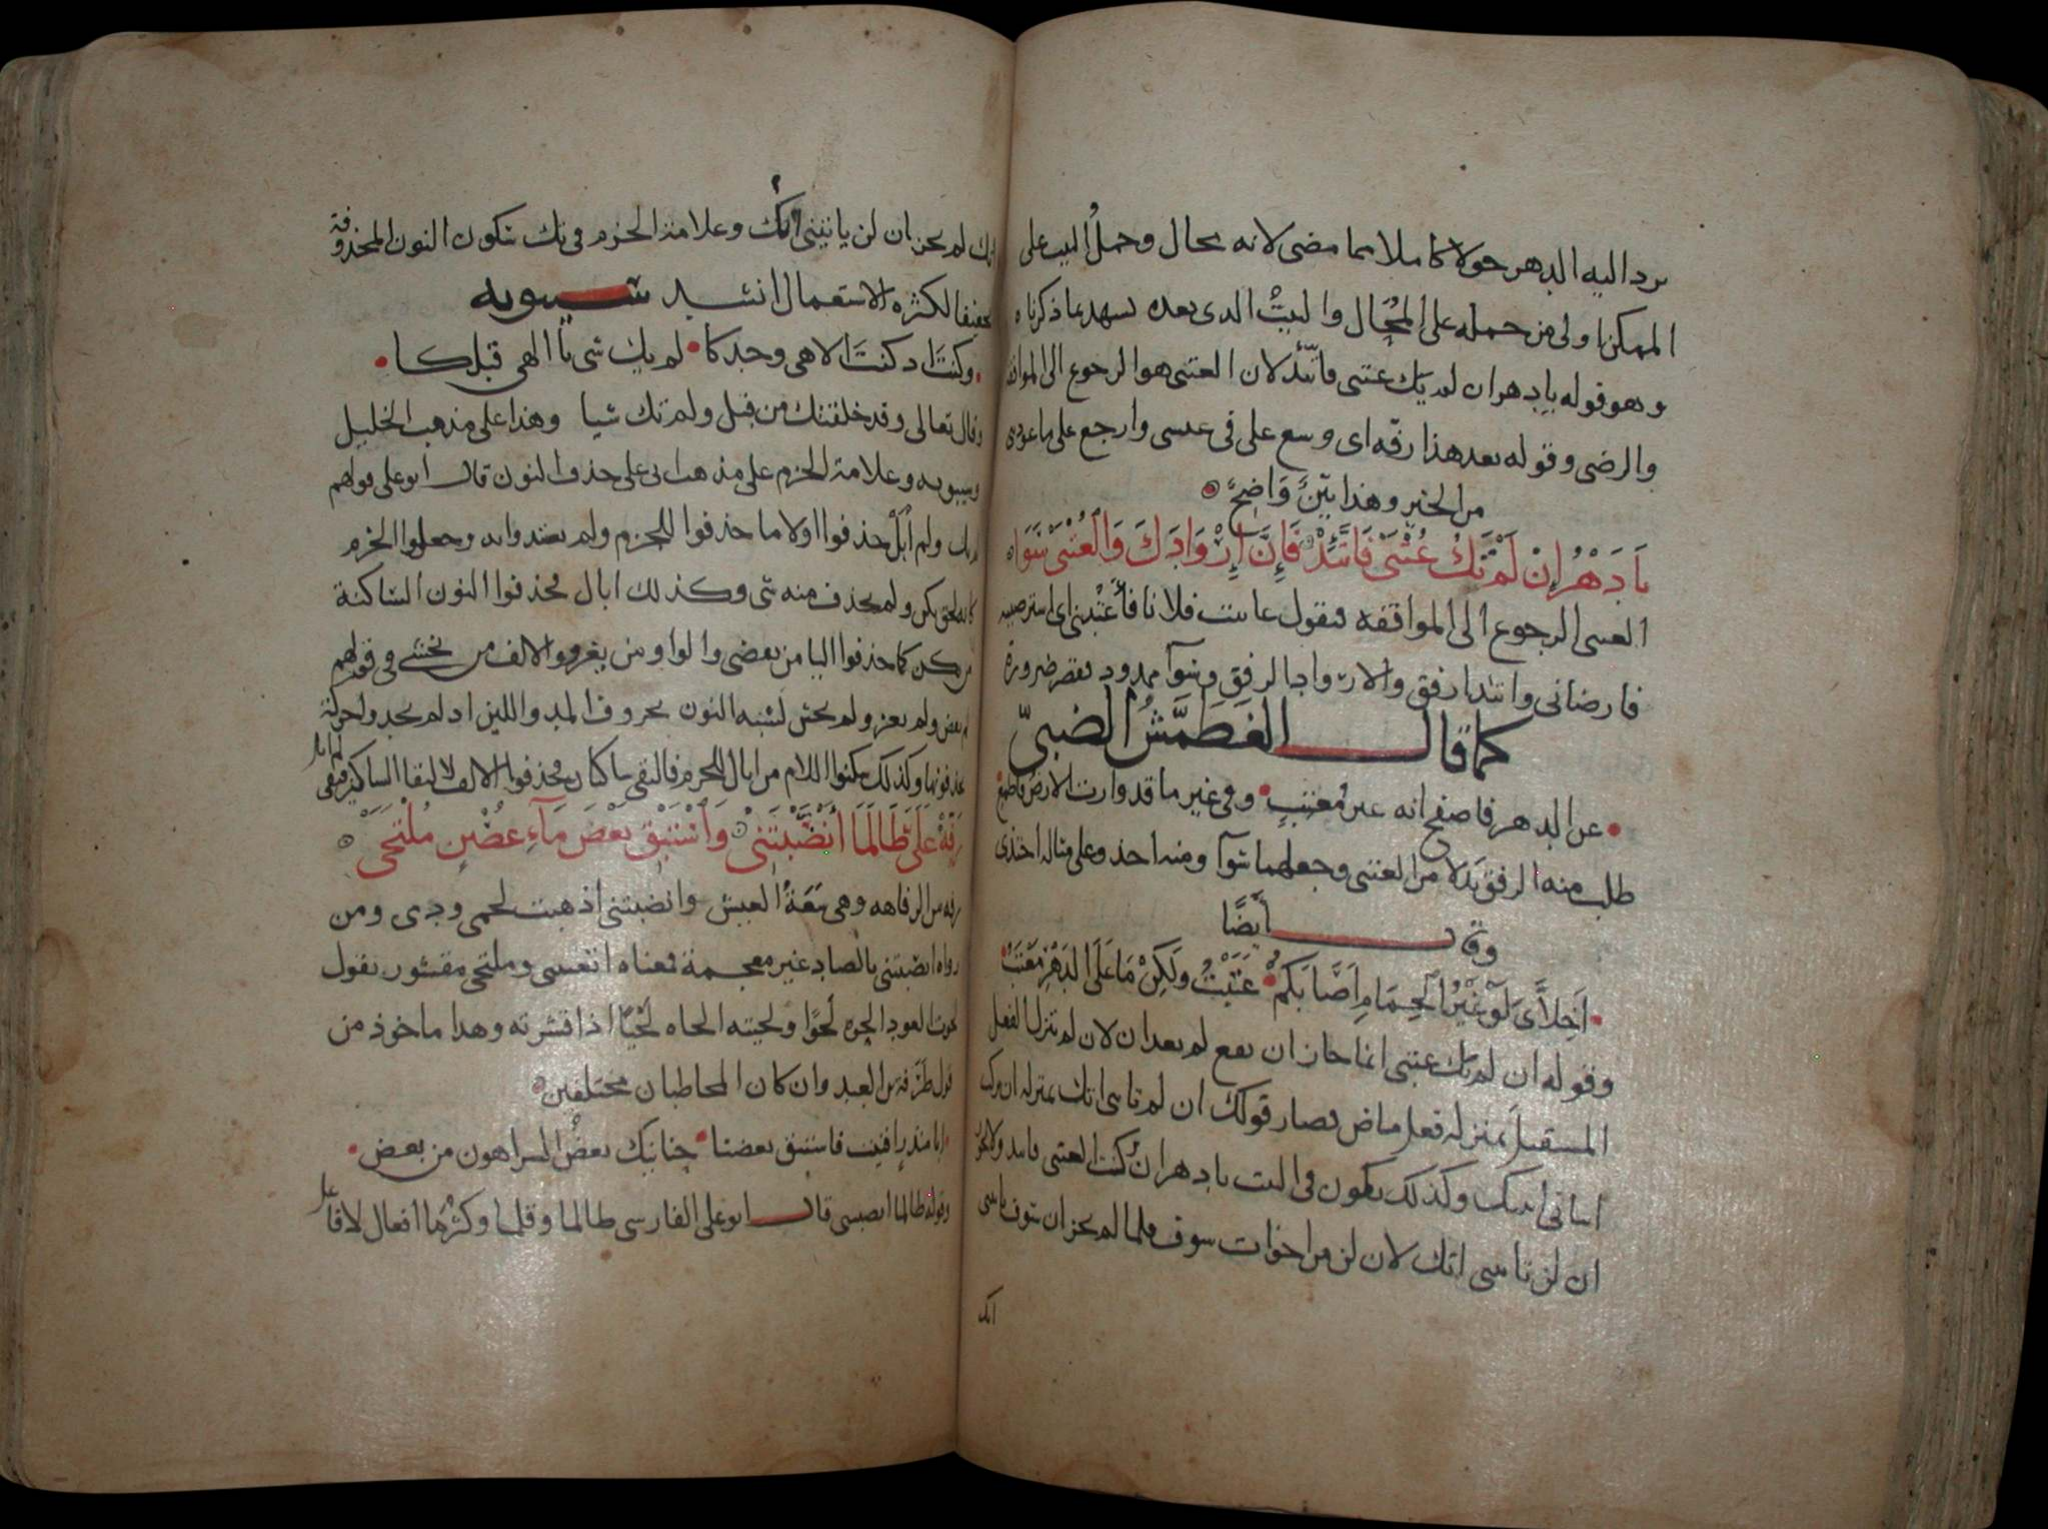 يرد اليه الدهر حولا كاملا مما مضى لانه محال وحمل البيت على
الممكن اولى من حمله على المحال والبيت الذى بعده يشهد بما ذكرناه
وهو قوله يا دهر ان لم يك عتبى فاتئد لان العتبى هو الرجوع الى
والرضى وقوله بعد هذا رفه اى وسع على فى عيشى وارجع على ما عودتنى
من الخير وهذا بين واضح
يَا دَهْرُ إِنْ لَمْ تَكُ عُتْبَى فَاتَّئِدْ فَإِنَّ إِرْوَادَكَ وَالْعُتْبَى سَوَا
العتبى الرجوع الى الموافقه فتقول عاتبت فلانا فأعتبنى اى استرضيته
فارضانى واتئد ارفق والارواد الرفق وسوآ ممدود فقصر ضرورة
كما قال الغَطَمَّشُ الضبىّ
عن الدهر فاصفح انه غير مُعتِبٍ وفى غير ما قد وارت الارض فاطمع
طلب منه الرفق بدلا من العتبى وجعلهما سوآ ومنه اخذ وعلى مثاله احتذى
وقال أيضًا
أَخِلَّاىَ لَوْ غَيْرُ الْحِمَامِ أَصَابَكُمْ عَتَبْتُ وَلَكِنْ مَا عَلَى الدَّهْرِ مَعْتَبُ
وقوله ان لم تك عتبى انما جاز ان يقع لم بعد ان لان لم تنزل الفعل
المستقبل بمنزلة فعل ماض فصار قولك ان لم تاتنى اتك بمنزلة ان تركت
اتيانى اتيتك وكذلك يكون فى البيت يا دهر ان تركت العتبى فاتئد ولا يجوز
ان لن تاتنى اتك لان لن من اخوات سوف فلما لم يجز ان سوف تاتنى
اتك
اتك لم يجز ان لن ياتينى اتك وعلامة الجزم فى تك سكون النون المحذوفة
تخفيفا لكثرة الاستعمال انشد سيبويه
وكنتَ اذ كنتَ الاهى وحدكا لم يك شى يا الهى قبلكا
وقال تعالى وقد خلقتك من قبل ولم تك شيا وهذا على مذهب الخليل
وسيبويه وعلامة الجزم على مذهب ابى على حذف النون قال ابو على قولهم
لم يك ولم أبَلْ حذفوا اولا ما حذفوا للجزم ولم يعتدوا به وجعلوا الجزم
كانه لحق يكن ولم يحذف منه شى وكذلك ابال فحذفوا النون الساكنة
من يكن كما حذفوا اليا من يقضى والواو من يغزو والالف من يخشى فى قولهم
لم يقض ولم يغز ولم يخش لشبه النون بحروف المد واللين اذ لم يجدوا حركة
يحذفونها وكذلك سكنوا اللام من ابال للجزم فالتقى ساكنان فحذفوا الالف لالتقا الساكنين فبقى
رَفِّهْ عَلَىَّ طَالَمَا أَنْضَبْتَنِى وَاسْتَبْقِ بَعْضَ مَآءِ غُصْنٍ مُلْتَحَى
رفه من الرفاهه وهى سَعَةُ العيش وانضبتنى اذهبت لحمى ودمى ومن
رواه انصبتنى بالصاد غير معجمة فمعناه اتعبتنى وملتحى مقشور يقول
لحوت العود الحوه لحوًا ولحيته الحاه لحْيًا اذا قشرته وهذا ماخوذ من
قول طَرَفة بن العبد وان كان المخاطبان مختلفين
ابا منذر افنيت فاستبق بعضنا حنانيك بعضُ الشر اهون من بعض
وقوله طالما انضبتنى قال ابو على الفارسى طالما وقلما وكثرما افعال لا فاعل